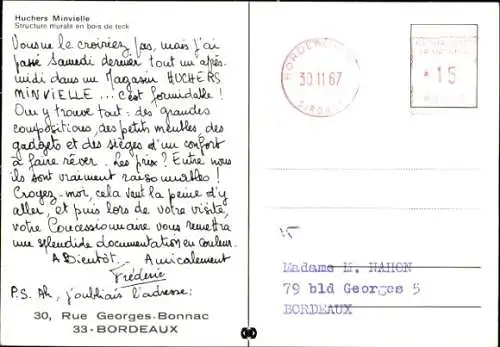 Huchers Minvielle
Structure murale en bois de teck
Vous ne le croiriez pas, mais j'ai
passé Samedi dernier tout un après-
midi dans un Magasin HUCHERS
MINVIELLE... c'est formidable!
On y trouve tout: des grandes
compositions, des petits meubles, des
gadgets et des sièges d'un confort
à faire rêver. Les prix? Entre nous
ils sont vraiment raisonnables!
Croyez-moi, cela vaut la peine d'y
aller et puis lors de votre visite,
votre Concessionnaire vous remettra
une splendide documentation en couleur.
A Bientôt. Amicalement
Frédéric
P.S. Ah, j'oubliais l'adresse:
30, Rue Georges-Bonnac
33-BORDEAUX
BORDEAUX
30 11 67
GIRONDE
15
15
Madame M. NAHON
79 bld Georges 5
BORDEAUX